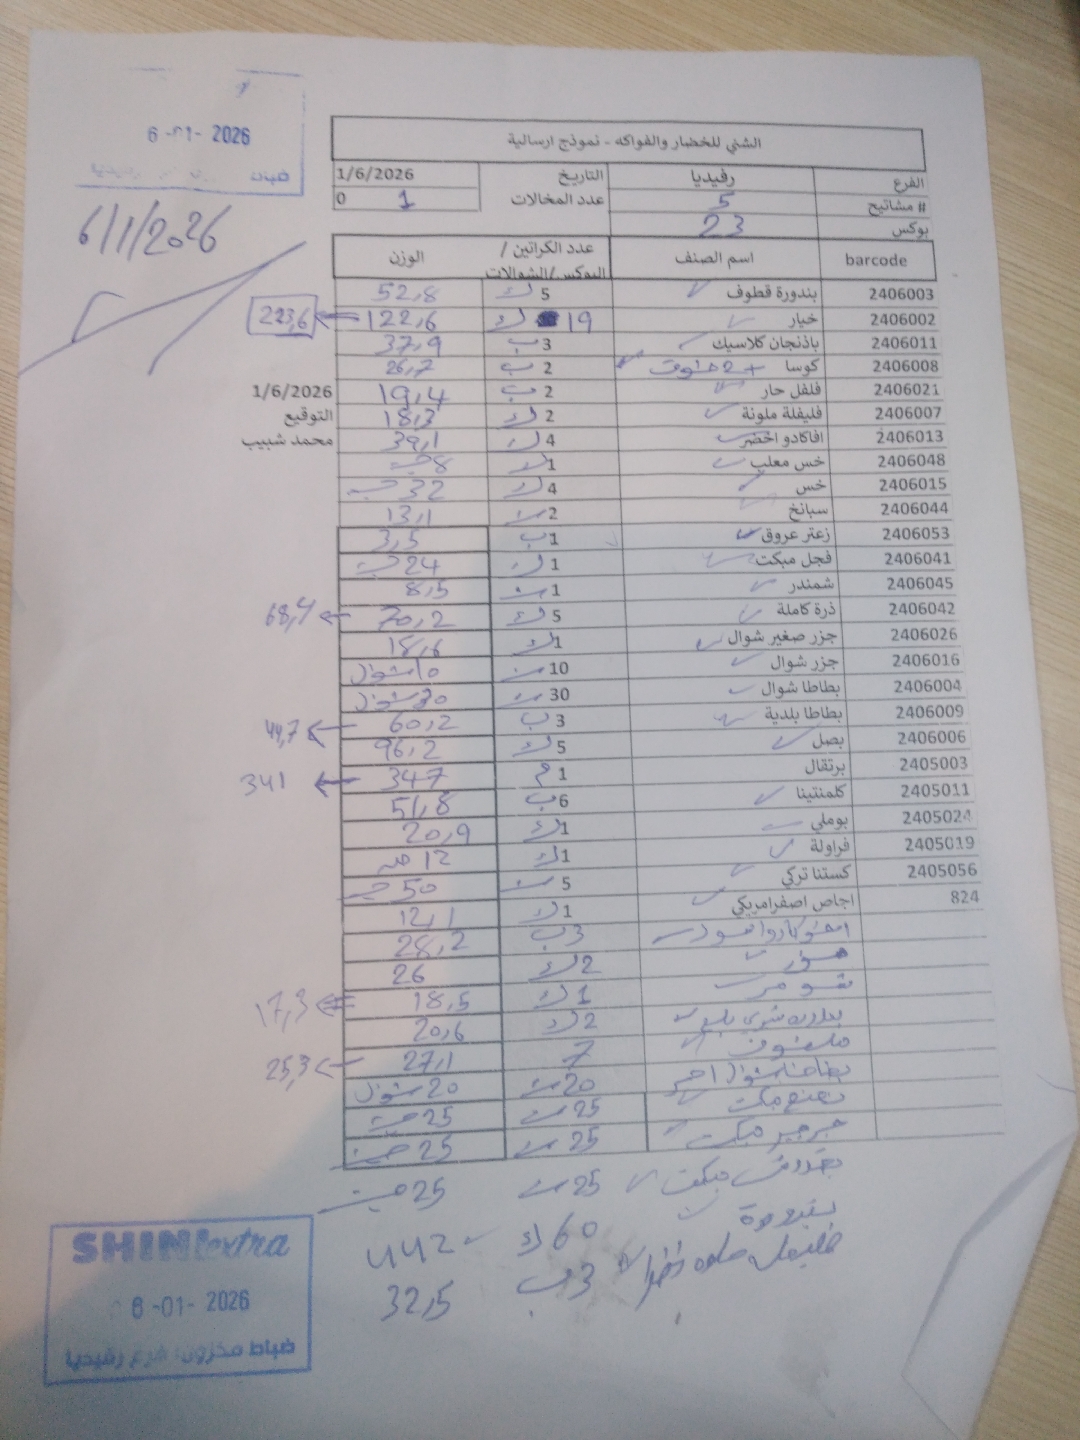 6-01-2026
6/1/2026
الشني للخضار والفواكه - نموذج ارسالية
الفرع رفيديا التاريخ 1/6/2026
# مشاتيح 5 عدد المخالات 1 0
بوكس 23
barcode اسم الصنف عدد الكراتين / البوكس/الشوالات الوزن
2406003 بندورة قطوف 5 ك 52,8
2406002 خيار 19 ك 122,6 ← 223,6
2406011 باذنجان كلاسيك 3 ب 37,9
2406008 كوسا 2 ب 26,7
2406021 فلفل حار 2 ب 19,4 1/6/2026
2406007 فليفلة ملونة 2 ك 18,3 التوقيع
2406013 افاكادو اخضر 4 ك 39,1 محمد شبيب
2406048 خس معلب 1 ك 8
2406015 خس 4 ك 32
2406044 سبانخ 2 13,1
2406053 زعتر عروق 1 ب 3,5
2406041 فجل مبكت 1 ك 24
2406045 شمندر 1 8,5
2406042 ذرة كاملة 5 ك 70,2 ← 68,4
2406026 جزر صغير شوال 1 ك 18,6
2406016 جزر شوال 10 10 شوال
2406004 بطاطا شوال 30 30 شوال
2406009 بطاطا بلدية 3 ب 60,2 ← 44,7
2406006 بصل 5 ك 96,2
2405003 برتقال 1 م 347 ← 341
2405011 كلمنتينا 6 ب 51,8
2405024 بوملي 1 ك 20,9
2405019 فراولة 1 ك 12
2405056 كستنا تركي 5 50
824 اجاص اصفرامريكي 1 ك 12,1
3 ب 28,2
موز 2 ك 26
1 ك 18,5 ← 17,3
2 ك 20,6
ملفوف 7 27,1 ← 25,3
شوال احمر 20 20 شوال
نعنع مبكت 25 25
جرجير مبكت 25 25
بقدونس مبكت 25 25
بندورة 60 ك 442
3 ب 32,5
SHINIextra
6-01-2026
ضباط مخزون: فرع رفيديا